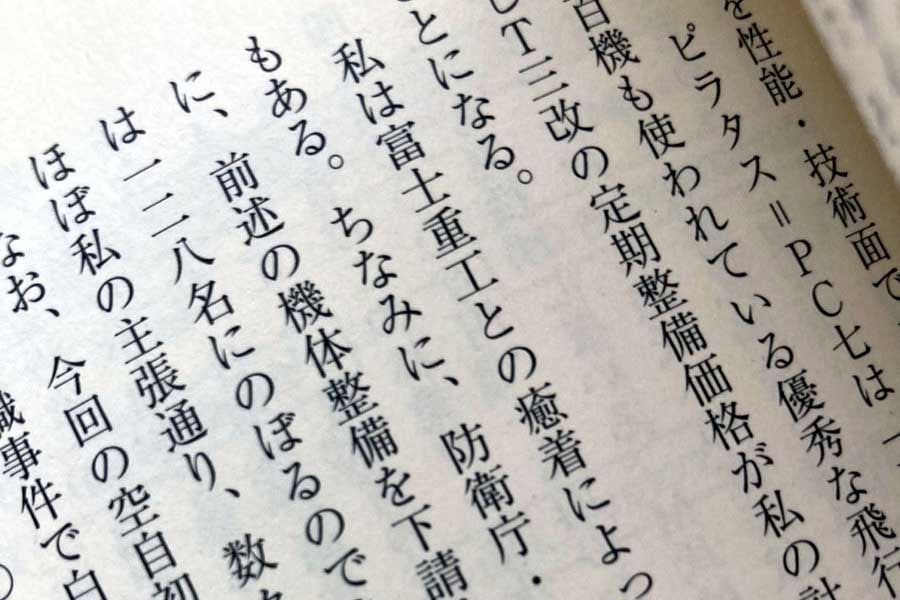 を性能・技術面で
ピラタス＝PC七は
百機も使われている優秀な飛行
T三改の定期整備価格が私の
とになる。
私は富士重工との癒着によっ
もある。ちなみに、防衛庁・
に、前述の機体整備を下請
は一二八名にのぼるので
ほぼ私の主張通り、数
なお、今回の空自初
職事件で白